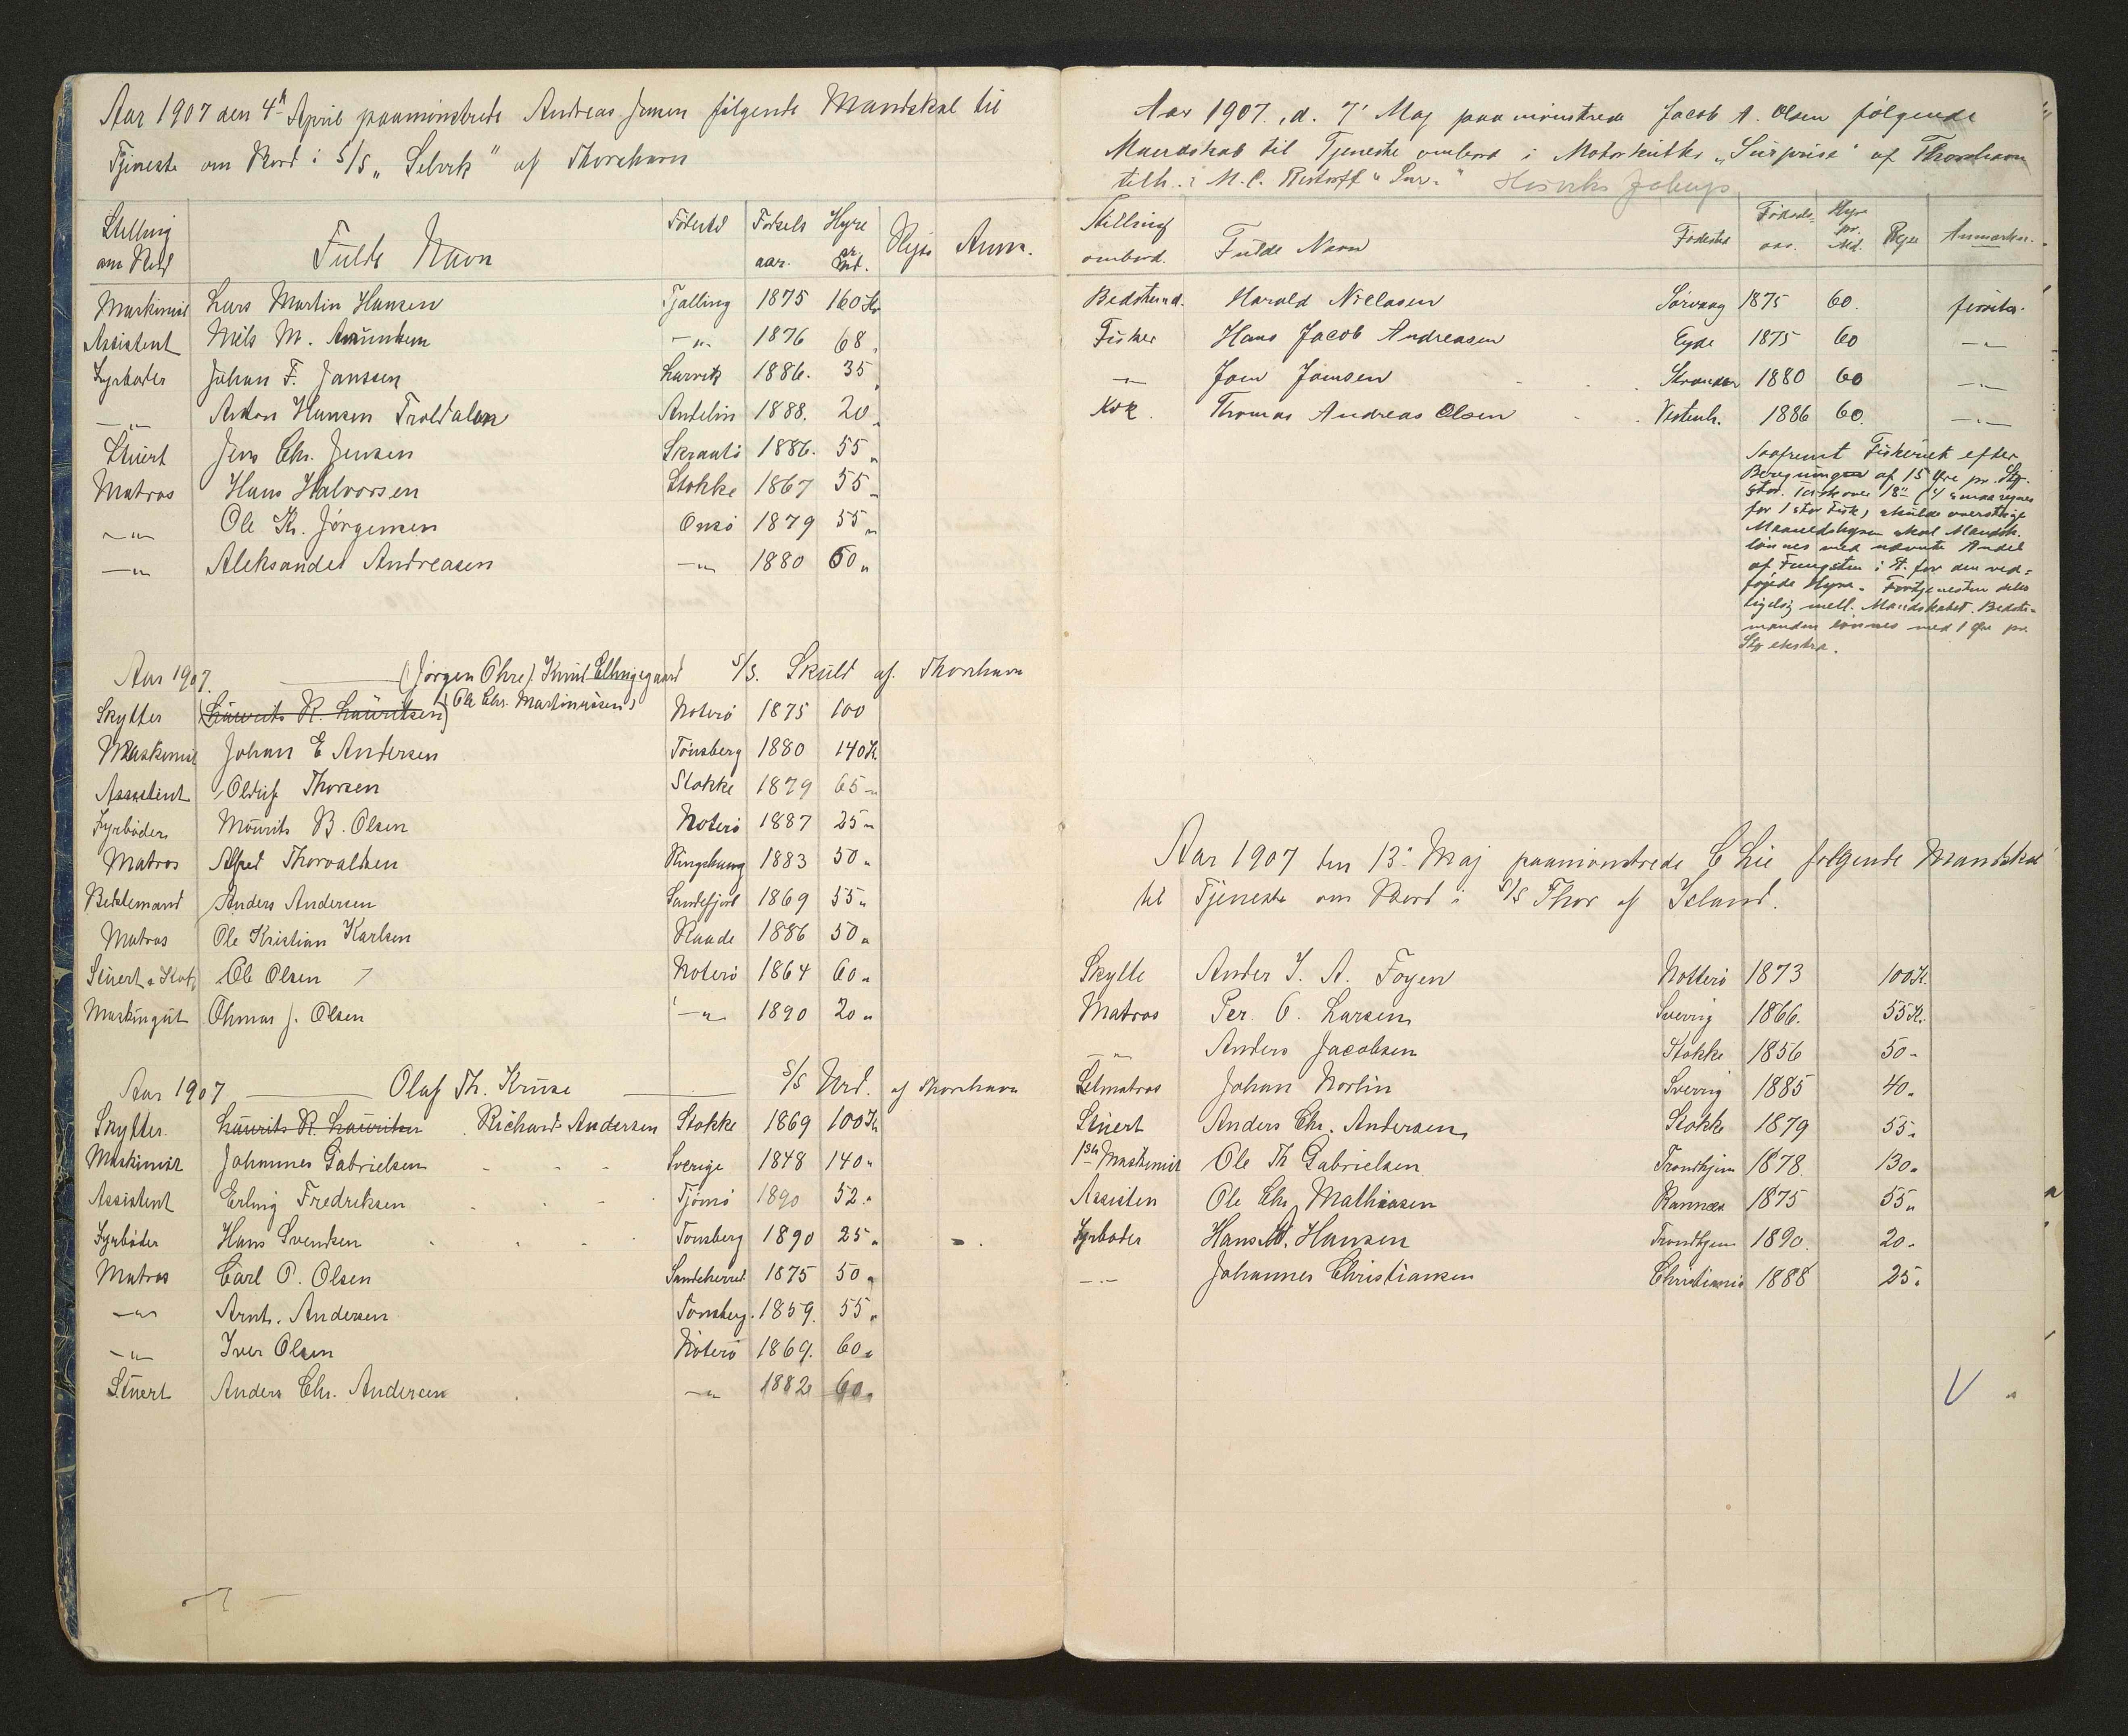 Aar 1907 den 4de April paamönstrede Andreas Jensen fölgende Mandskab til
Tjeneste om Bord i S/S „Selvik" af Thorshavn
Stilling om Bord Fulde Navn Födested Födsels aar. Hyre pr. Md. Rejse Anm.
Maskinist Lars Martin Hansen Tjølling 1875 160 Kr
Assistent Nils M. —„— 1876 68„
Fyrböder Johan F. Janssen Larvik 1886. 35„
—„— Anton Hansen Troldalen 1888. 20„
Stuert Jens Chr. Jensen 1886. 55„
Matros Hans Halvorsen Stokke 1867 55„
—„— Ole Kr. Jörgensen Onsö 1879 55„
—„— Aleksander Andreasen —„— 1880 50„
Aar 1907. — (Jörgen Öhre) Knud Ellingsgaard S/S. Skuld af. Thorshavn
Skytter (Laurits R. Lauritsen) (Ole Chr. Martiniussen) Noterö 1875 100
Maskinist Johan E Andersen Tönsberg 1880 140 Kr.
Assistent Oluf Thorsen Stokke 1879 65„
Fyrböder Mourits B. Olsen Noterö 1887 25„
Matros Alfred Thorvaldsen Ringshaug 1883 50„
Bestemand Anders Andersen Sandefjord 1869 55„
Matros Ole Kristian Karlsen Raade 1886 50„
Stuert & Kok Ole Olsen Noterö 1864 60„
Maskingut Ohmar J. Olsen —„— 1890 20„
Aar 1907 — Olaf Th. Kruse — S/S Urd. af Thorshavn
Skytter Laurits R. Lauritsen Richard Andersen Stokke 1869 100 Kr
Maskinist Johannes Gabrielsen Sverige 1848 140„
Assistent Erling Fredriksen Tjömö 1890 52„
Fyrböder Hans Svendsen Tönsberg 1890 25„
Matros Carl P. Olsen Sandeherred 1875 50„
—„— Arnt. Andersen Tönsberg. 1859. 55„
—„— Iver Olsen Nöterö 1869. 60„
Stuert Anders Chr. Andersen —„— 1882 60„
Aar 1907., d. 7' Maj paamönstrede Jacob A. Olsen fölgende
Mandskab til Tjeneste ombord i Motorkutter „Surprise" af Thorshavn
tilh. M. C. Restorff
Stilling ombord. Fulde Navn Födested Födselsaar. Hyre pr. Md. Rejse Anmærkn.
Bedstemd. Harald Niclasen Sörvaag 1875 60.
Fisker Hans Jacob Andreasen Eyde 1875 60 —„—
—„— Joen Joensen 1880 60 —„—
Kok. Thomas Andreas Olsen Vestmh. 1886 60. —„—
Saafremt Fiskeriet efter
Beregningen af 15 Öre pr. Stk.
stor. Torsk over 18" (4 smaa regnes
for 1 stor Fisk) skulde overstige
Maanedshyren skal Mandsk.
lönnes med nævnte Andel
af Fangsten i St. for den ved-
föjede Hyre. Fortjenesten deles
ligelig mell. Mandskabet. Bedste-
manden lönnes med 1 Öre pr.
Stk ekstra.
Aar 1907 den 13de Maj paamönstrede C Lie fölgende Mandskab
til Tjeneste om Bord i S/S Thor af Island.
Skytte Anders J. A. Foyen Notterö 1873 100 Kr.
Matros Per. O. Larsen Sverrig 1866. 55 Kr.
—„— Anders Jacobsen Stokke 1856 50„
Letmatros Johan Norlin Sverrig 1885 40„
Stuert Anders Chr. Andersen Stokke 1879 55„
1ste Maskinist Ole Th Gabrielsen Trondhjem 1878. 130„
Assisten Ole Chr. Mathiasen Ramnæs 1875 55„
Fyrböder Hans M. Hansen Trondhjem 1890. 20„
—„— Johannes Christiansen Christiania 1888 25„